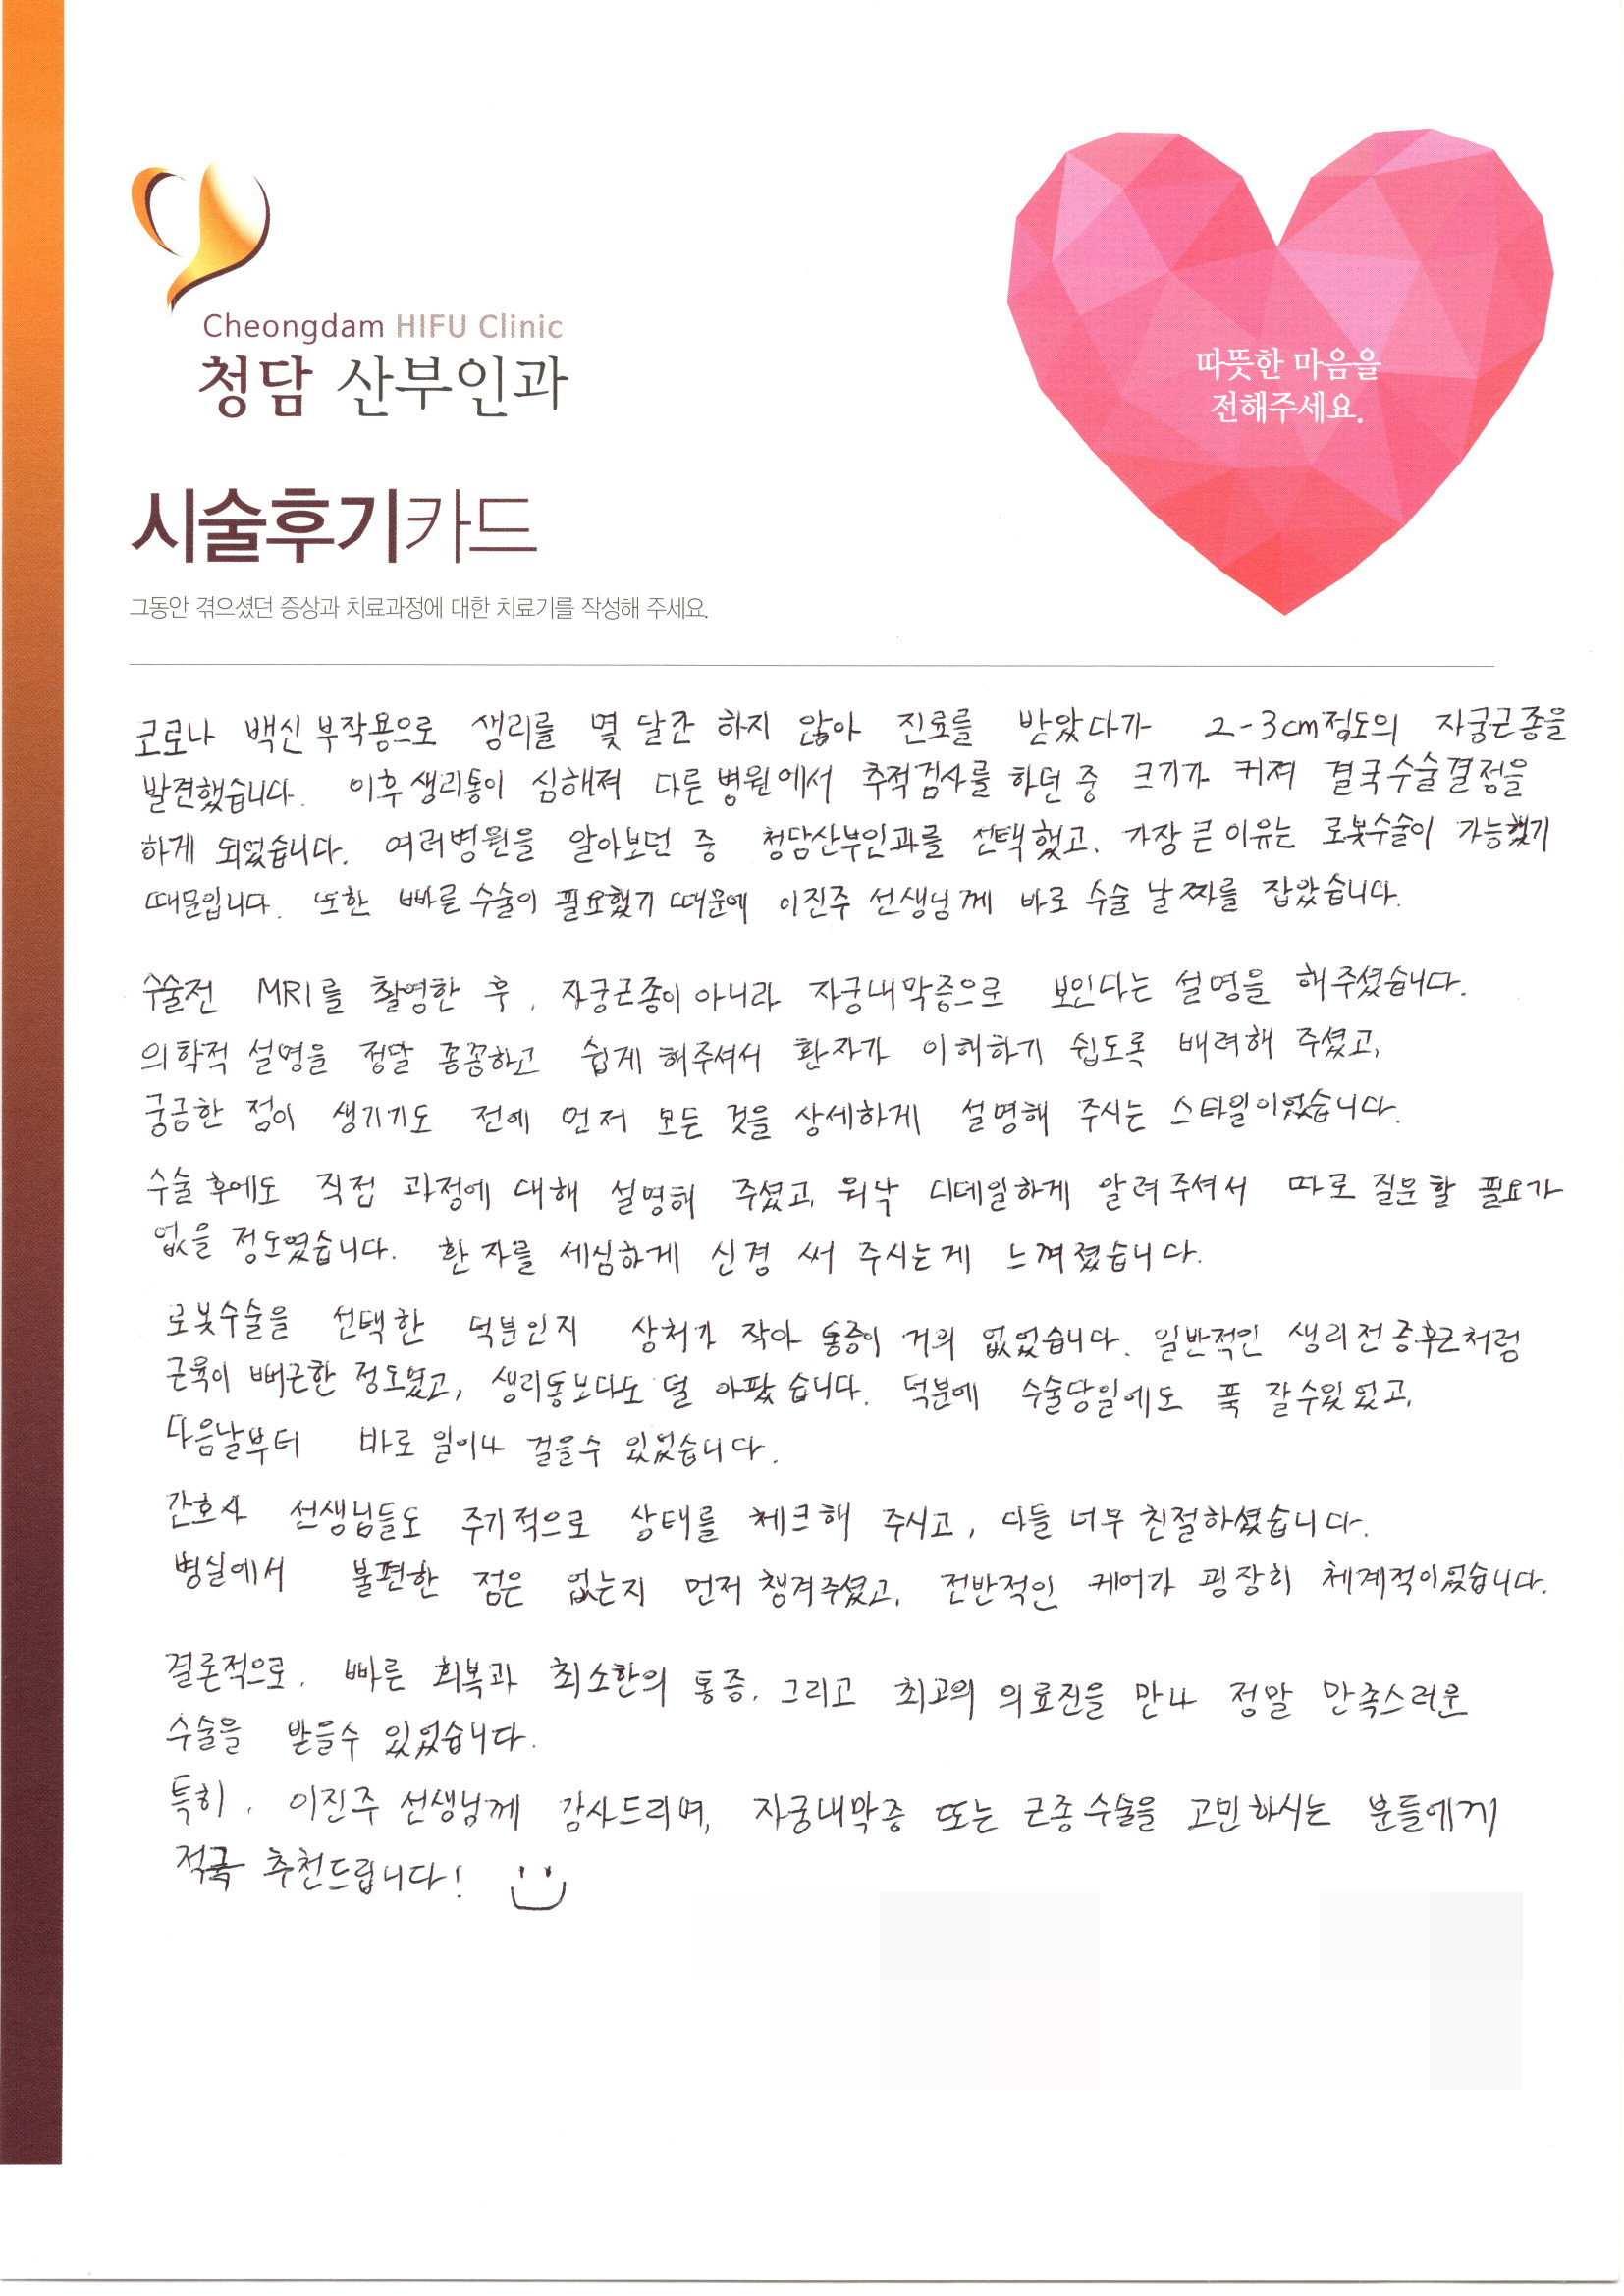 Cheongdam HIFU Clinic
청담 산부인과
따뜻한 마음을
전해주세요.
시술후기카드
그동안 겪으셨던 증상과 치료과정에 대한 치료기를 작성해 주세요.
코로나 백신 부작용으로 생리를 몇 달간 하지 않아 진료를 받았다가 2-3cm정도의 자궁근종을
발견했습니다. 이후 생리통이 심해져 다른 병원에서 추적검사를 하던 중 크기가 커져 결국 수술결정을
하게 되었습니다. 여러병원을 알아보던 중 청담산부인과를 선택했고, 가장 큰 이유는 로봇수술이 가능했기
때문입니다. 또한 빠른 수술이 필요했기 때문에 이진주 선생님께 바로 수술 날짜를 잡았습니다.
수술전 MRI를 촬영한 후, 자궁근종이 아니라 자궁내막증으로 보인다는 설명을 해주셨습니다.
의학적 설명을 정말 꼼꼼하고 쉽게 해주셔서 환자가 이해하기 쉽도록 배려해 주셨고,
궁금한 점이 생기기도 전에 먼저 모든 것을 상세하게 설명해 주시는 스타일이었습니다.
수술 후에도 직접 과정에 대해 설명해 주셨고, 워낙 디테일하게 알려주셔서 따로 질문할 필요가
없을 정도였습니다. 환자를 세심하게 신경 써 주시는게 느껴졌습니다.
로봇수술을 선택한 덕분인지 상처가 작아 통증이 거의 없었습니다. 일반적인 생리전증후군처럼
근육이 뻐근한 정도였고, 생리통보다도 덜 아팠습니다. 덕분에 수술당일에도 푹 잘수있었고,
다음날부터 바로 일어나 걸을수 있었습니다.
간호사 선생님들도 주기적으로 상태를 체크해 주시고, 다들 너무 친절하셨습니다.
병실에서 불편한 점은 없는지 먼저 챙겨주셨고, 전반적인 케어가 굉장히 체계적이었습니다.
결론적으로, 빠른 회복과 최소한의 통증, 그리고 최고의 의료진을 만나 정말 만족스러운
수술을 받을수 있었습니다.
특히, 이진주 선생님께 감사드리며, 자궁내막증 또는 근종수술을 고민하시는 분들에게
적극 추천드립니다!